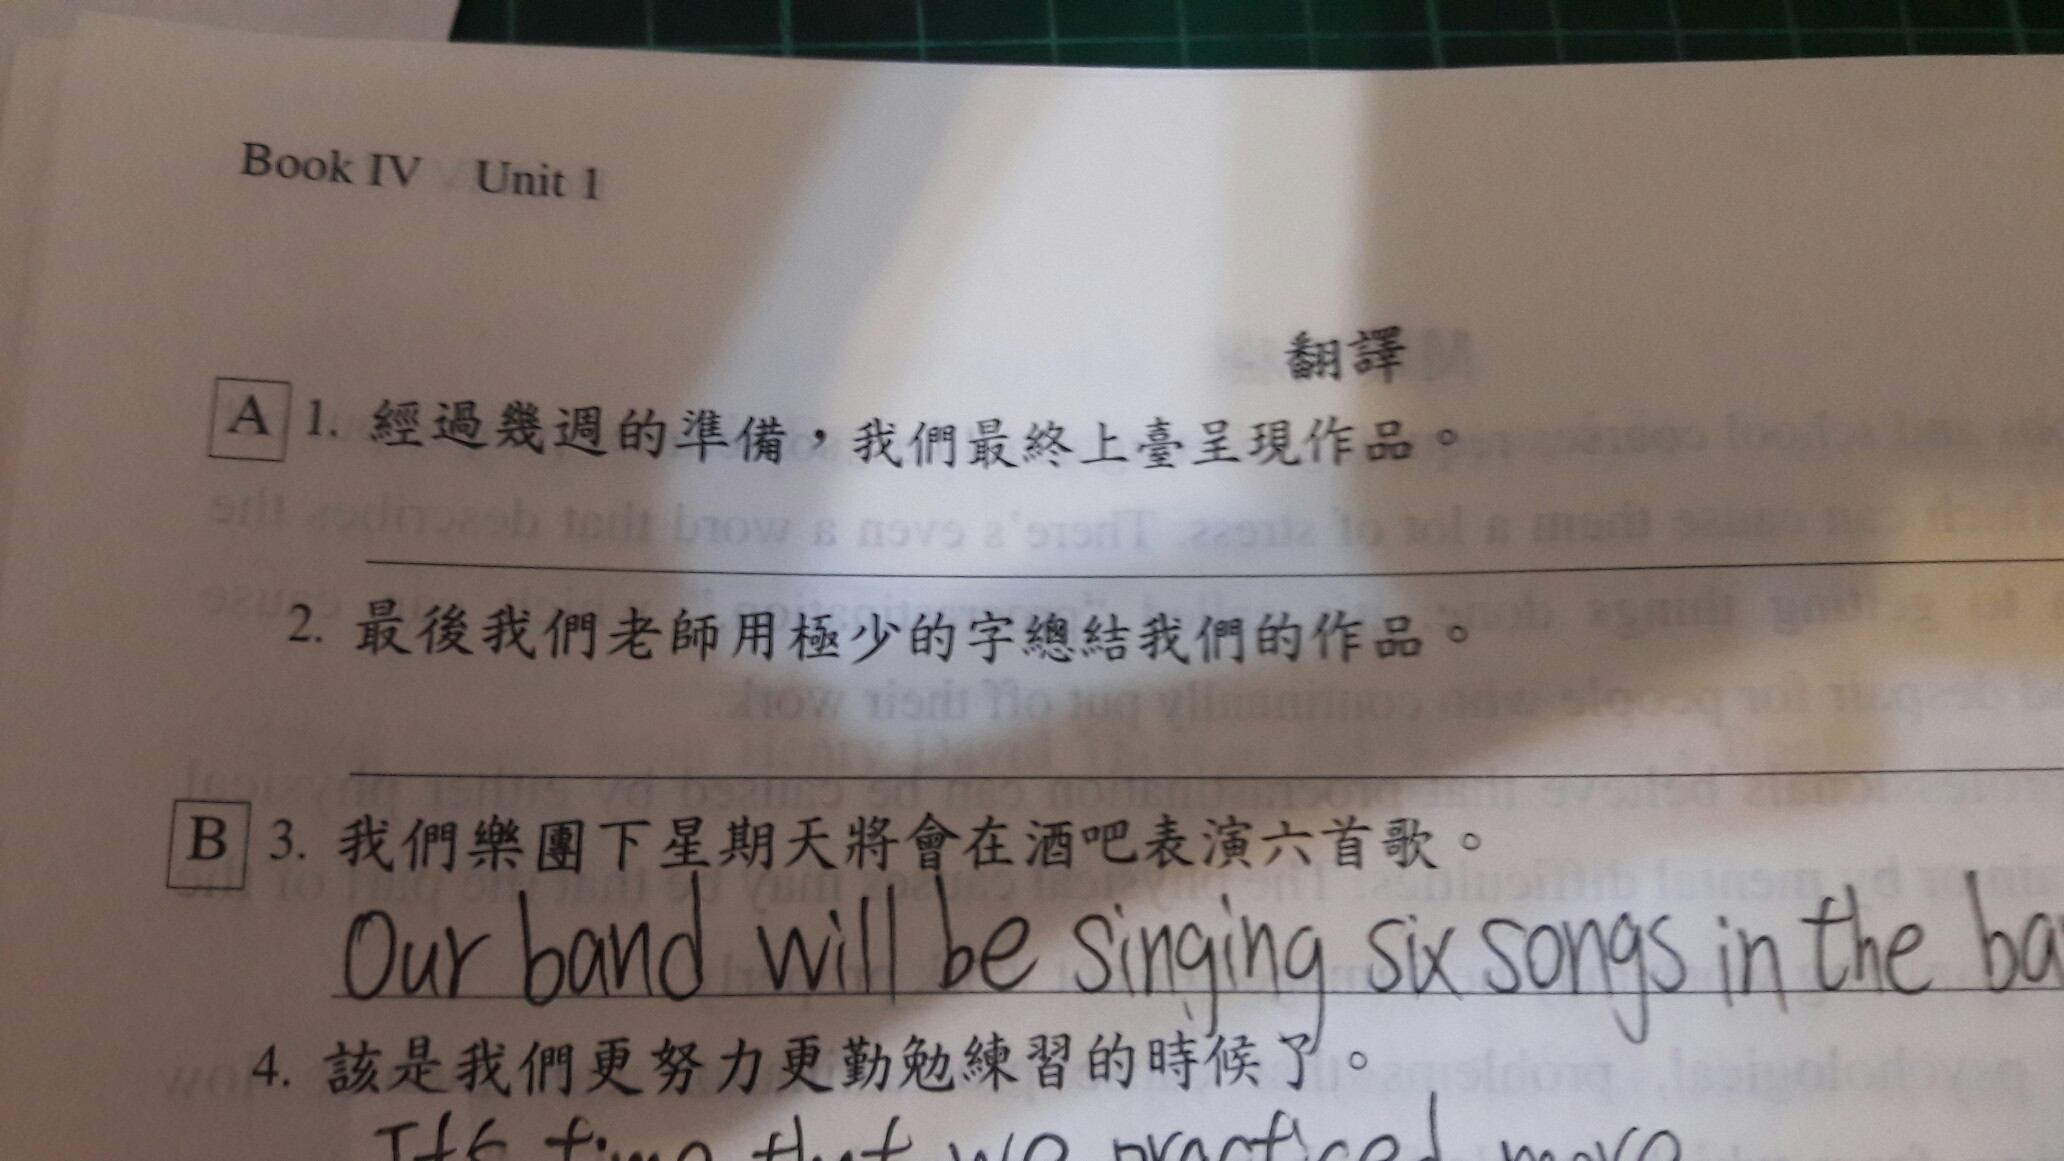 Book IV Unit 1
翻譯
A 1. 經過幾週的準備，我們最終上臺呈現作品。
2. 最後我們老師用極少的字總結我們的作品。
B 3. 我們樂團下星期天將會在酒吧表演六首歌。
Our band will be singing six songs in the
4. 該是我們更努力更勤勉練習的時候了。
It's time that we practiced more